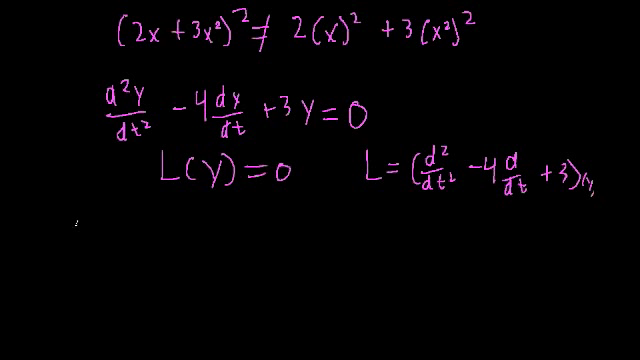 (2x + 3x²)² ≠ 2(x)² + 3(x²)²
d²y/dt² - 4 dy/dt + 3y = 0
L(y) = 0 L = (d²/dt² - 4 d/dt + 3)(y)